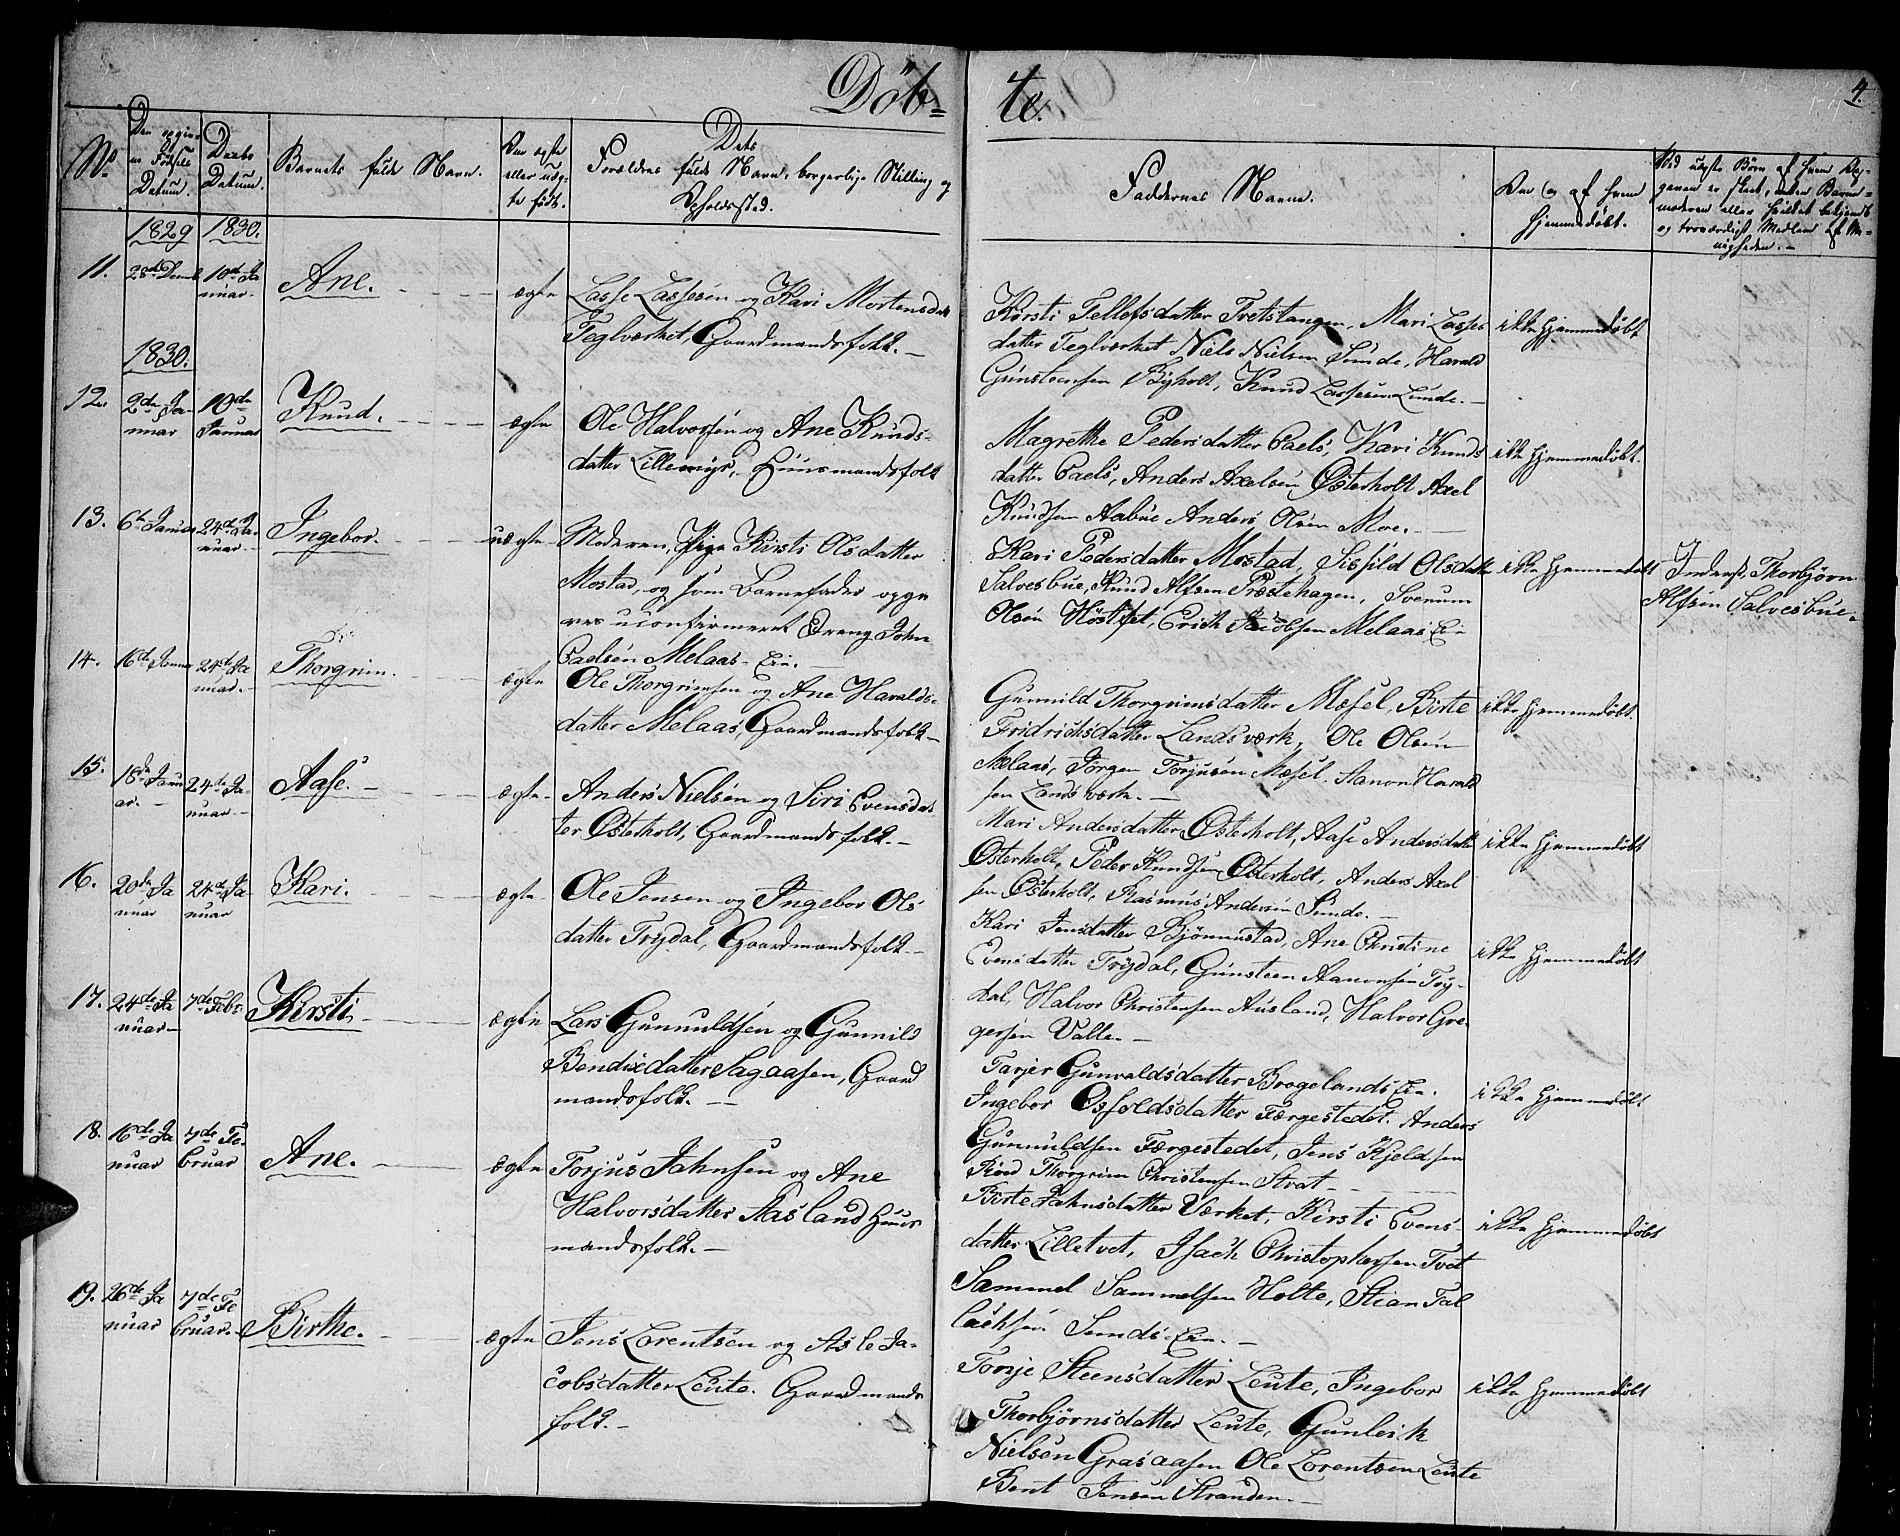 Döb=
te.
4.
No.
Den opgiv-
ne Fødsels
Datum.
Daabs
Datum.
Barnets fulde Navn.
Om ægte
eller uæg-
te født.
Dets
Forældres fulde Navn, borgerlige Stilling og
Opholdssted.
Faddernes Navne.
Om og af hvem
hjemmedøbt.
1829
1830.
11.
28de Decemb
10de Ja
nuar.
Ane.
ægte
Lasse Lassesen og Kari Mortensdat
Teglværket, Gaardmandsfolk.
Kirsti Tellefsdatter Tvetstangen, Mari Lasses
datter Teglværket Niels Nielsen Sunde, Harald
Gunsteensen Byholt, Knud Lassesen Lunde.
ikke hjemmedøbt
1830.
12.
2de Ja-
nuar
10de
Januar
Knud.
ægte
Ole Halvorsen og Ane Knuds-
datter Lillemyr, Huusmandsfolk
Magrethe Pedersdatter Caels, Kari Knuds
datter Caels, Anders Axelsen Østerholt Axel
Knudsen Aabue Anders Olsen Moe.
ikke hjemmedøbt.
13.
6te Januar
24de Ja-
nuar
Ingebor.
uægte
Moderen, Pige Kirsti Olsdatter
Mostad, og som Barnefader opgi
ves uconfirmeret Dreng John
Caelsen Melaas-Eie.
Kari Pedersdatter Mostad, Sisfild Olsdatter
Salvesbue, Knud Alfsen Præstehagen, Svenum
Olsen Höstfet, Erich Jacobsen Melaas Ei-
ikke hjemmedøbt
Inderst, Thorbjørn
Alfsen Salvesbue.
14.
16de Januar
24de Ja
nuar.
Thorgrim.
ægte
Ole Thorgrimsen og Ane Haralds-
datter Melaas, Gaardmandsfolk
Gunnild Thorgrimsdatter Mæsel, Birte
Fridrichsdatter Landsværk, Ole Olsen
Melaas, Jörgen Torjusen Mæsel. Aanon Harald
sen Landsværk.
ikke hjemmedøbt.
15.
18de Janu
ar.
24de Ja-
nuar
Aase.
ægte
Anders Nielsen og Siri Evensdat
ter Østerholt, Gaardmandsfolk.
Mari Andersdatter Østerholt, Aase Andersdatter
Østerholt, Peder Knudsen Østerholt, Anders Axel
sen Østerholt, Rasmus Andersen Sunde.
ikke hjemmedøbt
16.
20de Ja
nuar
24de Ja-
nuar
Kari.
ægte
Ole Jensen og Ingebor Ols
datter Trydal, Gaardmandsfolk.
Kari Jensdatter Bjönnestad, Ane Christine
Evensdatter Trydal, Gunsteen Aanonsen Try-
dal, Halvor Christensen Ausland, Halvor Gre-
gersen Valle.
ikke hjemmedøbt
17.
24de Ja
nuar
7de Febr
Kirsti
ægte
Lars Gunnuldsen og Gunnild
Bendixdatter Sagaasen, Gaard
mandsfolk.
Tarjer Gunvaldsdatter Brogelands Eie.
Ingebor Osfoldsdatter Færgestedet. Anders
Gunnuldsen Færgestedet, Jens Kjeldsen
Röed Thorgrim Christensen Strat
ikke hjemmedøbt
18.
16de Ja
nuar
7de Fe-
bruar
Ane.
ægte
Torjus Jahnsen og Ane
Halvorsdatter Aasland Huus
mandsfolk.
Birte Jahnsdatter Værket, Kirsti Evens
datter Lilletvet, Isach Christophersen Tvet
Sammel Sammelsen Holte, Stian Tal
lachsen Sunds-Eie.
ikke hjemmedøbt
19.
26de Ja
nuar
7de Fe
bruar.
Birthe.
ægte
Jens Lorentsen og Asle Ja-
cobsdatter Leute. Gaardmands
folk.
Tonje Steensdatter Leute, Ingebor
Thorbjörnsdatter Leute, Gunleik
Nielsen Grasaasen Ole Lorentsen Leute
Bent Jensen Stranden.
ikke hjemmedøbt